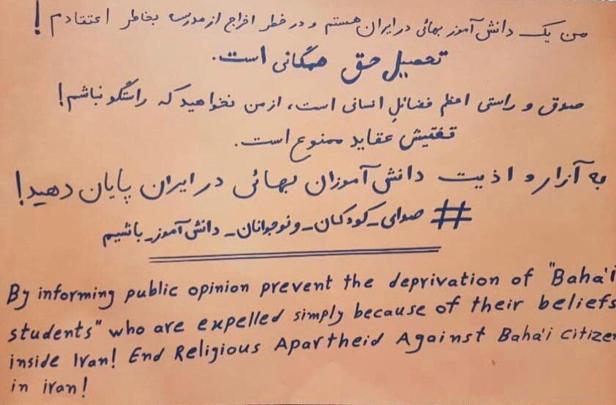 من یک دانش آموز بهائی در ایران هستم و در خطر اخراج از مدرسه بخاطر اعتقادم!
تحصیل حق همگانی است.
صدق و راستی اعظم فضائل انسانی است، از من نخواهید که راستگو نباشم!
تفتیش عقاید ممنوع است.
به آزار و اذیت دانش آموزان بهائی در ایران پایان دهید!
# صدای_کودکان_و نوجوانان_دانش آموز_باشیم
By informing public opinion prevent the deprivation of "Baha'i
students" who are expelled simply because of their beliefs
inside Iran! End Religious Apartheid Against Baha'i Citize
in iran!